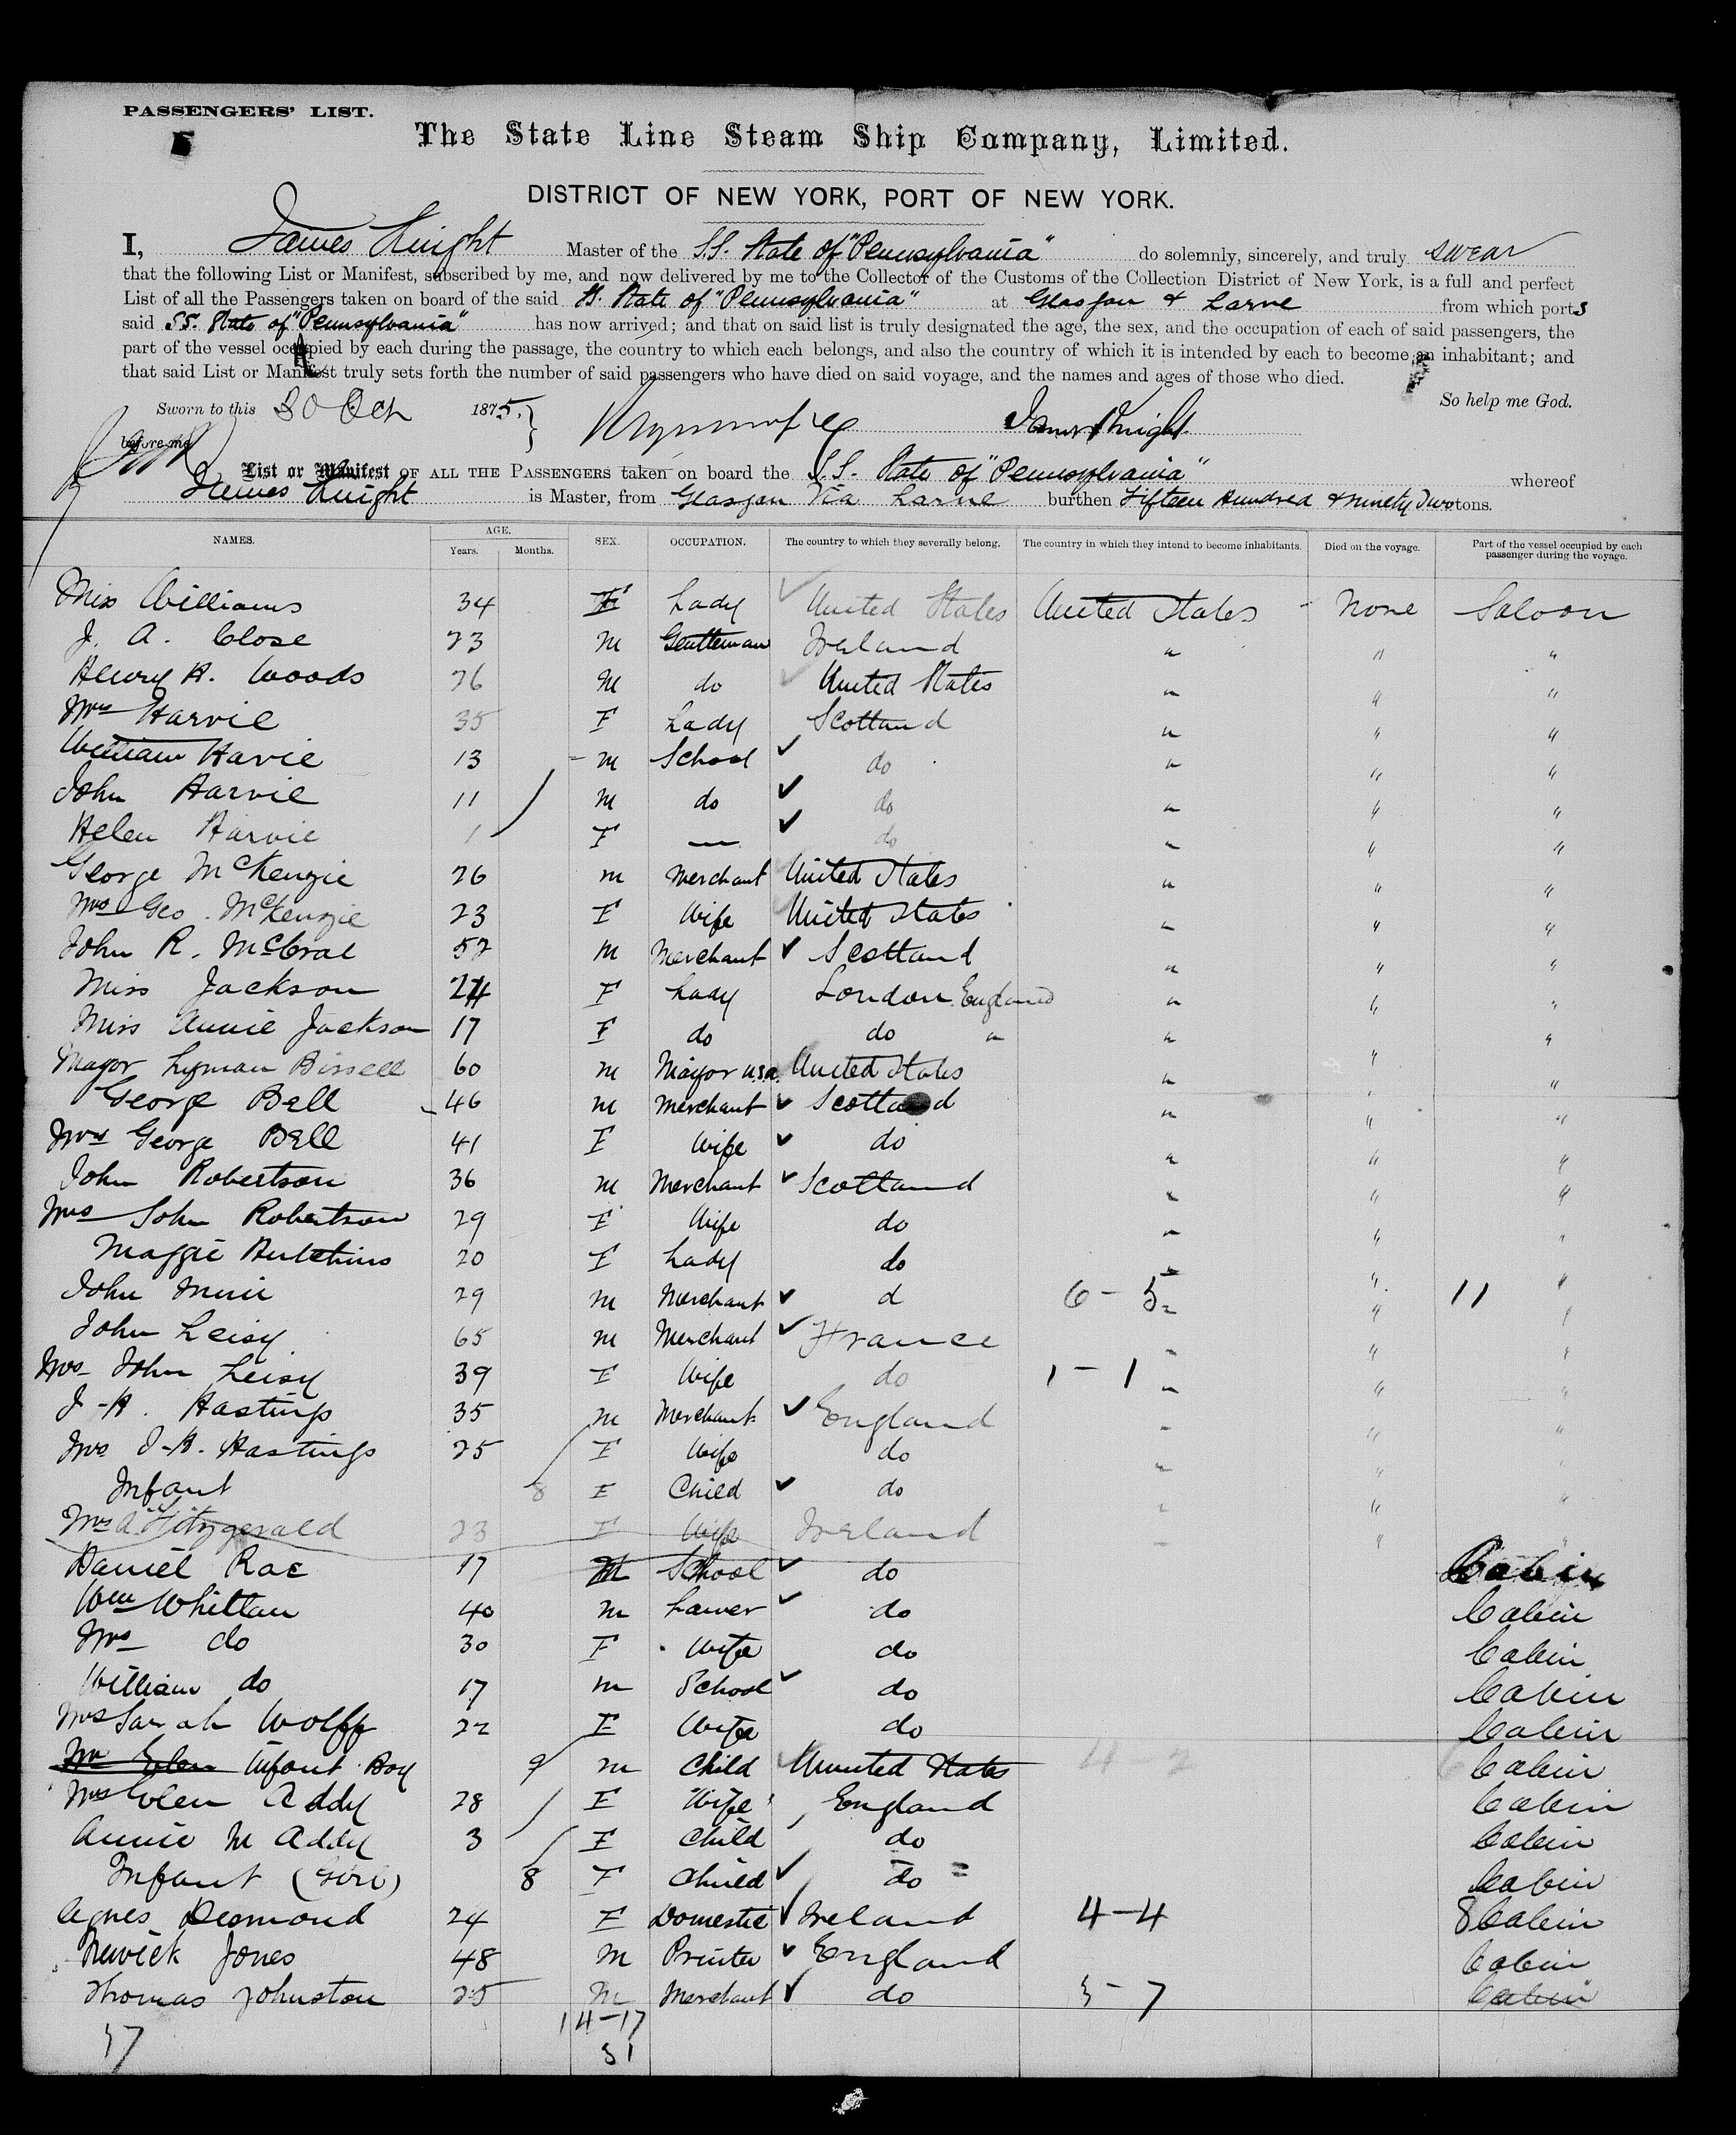 PASSENGERS' LIST.
5
The State Line Steam Ship Company, Limited.
DISTRICT OF NEW YORK, PORT OF NEW YORK.
I, James Knight Master of the S.S. State of "Pennsylvania" do solemnly, sincerely, and truly swear
that the following List or Manifest, subscribed by me, and now delivered by me to the Collector of the Customs of the Collection District of New York, is a full and perfect
List of all the Passengers taken on board of the said SS. State of "Pennsylvania" at Glasgow & Larne from which ports
said SS. State of "Pennsylvania" has now arrived; and that on said list is truly designated the age, the sex, and the occupation of each of said passengers, the
part of the vessel occupied by each during the passage, the country to which each belongs, and also the country of which it is intended by each to become an inhabitant; and
that said List or Manifest truly sets forth the number of said passengers who have died on said voyage, and the names and ages of those who died.
So help me God.
Sworn to this 30 Oct 1875.
James Knight
before me
List or Manifest OF ALL THE PASSENGERS taken on board the S.S. State of "Pennsylvania" whereof
James Knight is Master, from Glasgow Via Larne burthen Fifteen Hundred & ninety Two tons.
NAMES. AGE. Years. Months. SEX. OCCUPATION. The country to which they severally belong. The country in which they intend to become inhabitants. Died on the voyage. Part of the vessel occupied by each passenger during the voyage.
Miss Williams 34 F Lady United States United States None Saloon
J. A. Close 23 M Gentleman Ireland " " "
Henry H. Woods 26 M do United States " " "
Mrs Harvie 35 F Lady Scotland " " "
William Havie 13 M School do " " "
John Harvie 11 M do do " " "
Helen Harvie 1 F — do " " "
George McKenzie 26 M Merchant United States " " "
Mrs Geo. McKenzie 23 F Wife United States " " "
John R. McCrae 52 M Merchant Scotland " " "
Miss Jackson 24 F Lady London England " " "
Miss Annie Jackson 17 F do do " " " "
Mayor Lyman Bissell 60 M Mayor U.S.A. United States " " "
George Bell 46 M Merchant Scotland " " "
Mrs George Bell 41 F Wife do " " "
John Robertson 36 M Merchant Scotland " " "
Mrs John Robertson 29 F Wife do " " "
Maggie Hutchins 20 F Lady do " " "
John Muir 29 M Merchant d 6-5 " " 11 "
John Leisy 65 M Merchant France " " "
Mrs John Leisy 39 F Wife do 1-1 " " "
J-H. Hastings 35 M Merchant England " " "
Mrs J-H. Hastings 25 F Wife do " " "
Infant 8 F Child do " " "
Mrs A. Fitzgerald 23 F Wife Ireland " "
Daniel Rae 17 M School do Cabin
Wm Whittan 40 M Lawer do Cabin
Mrs do 30 F Wife do Cabin
William do 17 M School do Cabin
Mrs Sarah Wolff 22 F Wife do Cabin
Mrs Elen Infant Boy 9 M Child Uunited States 4 2 Cabin
Mrs Elen Addy 28 F Wife England Cabin
Annie M Addy 3 F Child do Cabin
Infant (Girl) 8 F Child do Cabin
Agnes Desmond 24 F Domestic Ireland 4-4 8 Cabin
Renwick Jones 48 M Printer England Cabin
Thomas Johnston 25 M Merchant do 3-7 Cabin
37 14-17
31